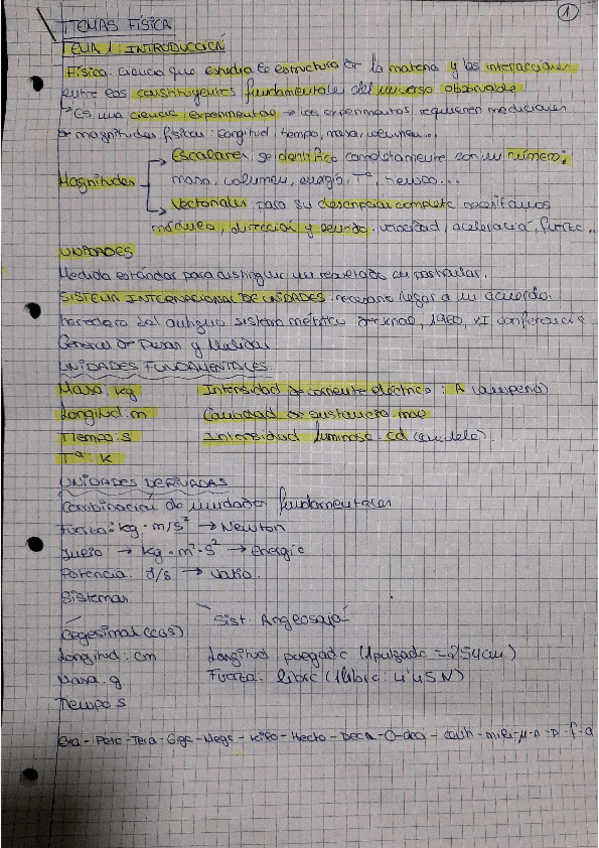 1
TEMAS FÍSICA
TEMA 1: INTRODUCCIÓN
Física: ciencia que estudia la estructura de la materia y las interacciones
entre los constituyentes fundamentales del universo observable
Es una ciencia experimental → los experimentos requieren mediciones
de magnitudes físicas: longitud, tiempo, masa, volumen...
Magnitudes
Escalares: se identifica completamente con un número:
masa, volumen, energía, Tª, tiempo...
Vectoriales: para su descripción completa necesitamos
módulo, dirección y sentido. velocidad, aceleración, fuerza...
UNIDADES
Medida estándar para distinguir un resultado en particular.
SISTEMA INTERNACIONAL DE UNIDADES: necesario llegar a un acuerdo.
heredero del antiguo sistema métrico decimal, 1960, XI conferencia
General de Pesas y Medidas
UNIDADES FUNDAMENTALES
Masa: kg Intensidad de corriente eléctrica: A (amperio)
Longitud: m Cantidad de sustancia: mol
Tiempo: s Intensidad luminosa: cd (candela)
Tª: K
UNIDADES DERIVADAS
Combinación de unidades fundamentales
Fuerza: kg · m/s² → Newton
Julio → kg · m² · s² → energía
Potencia: J/s → vatio.
Sistemas
Cegesimal (CGS) Sist. Anglosajá
Longitud: cm Longitud: pulgada (1pulgada = 2'54cm)
Masa: g Fuerza: libra (1libra: 4'45N)
Tiempo s
Exa - Peta - Tera - Giga - Mega - Kilo - Hecto - Deca - O - deci - centi - mili - μ - n - p - f - a